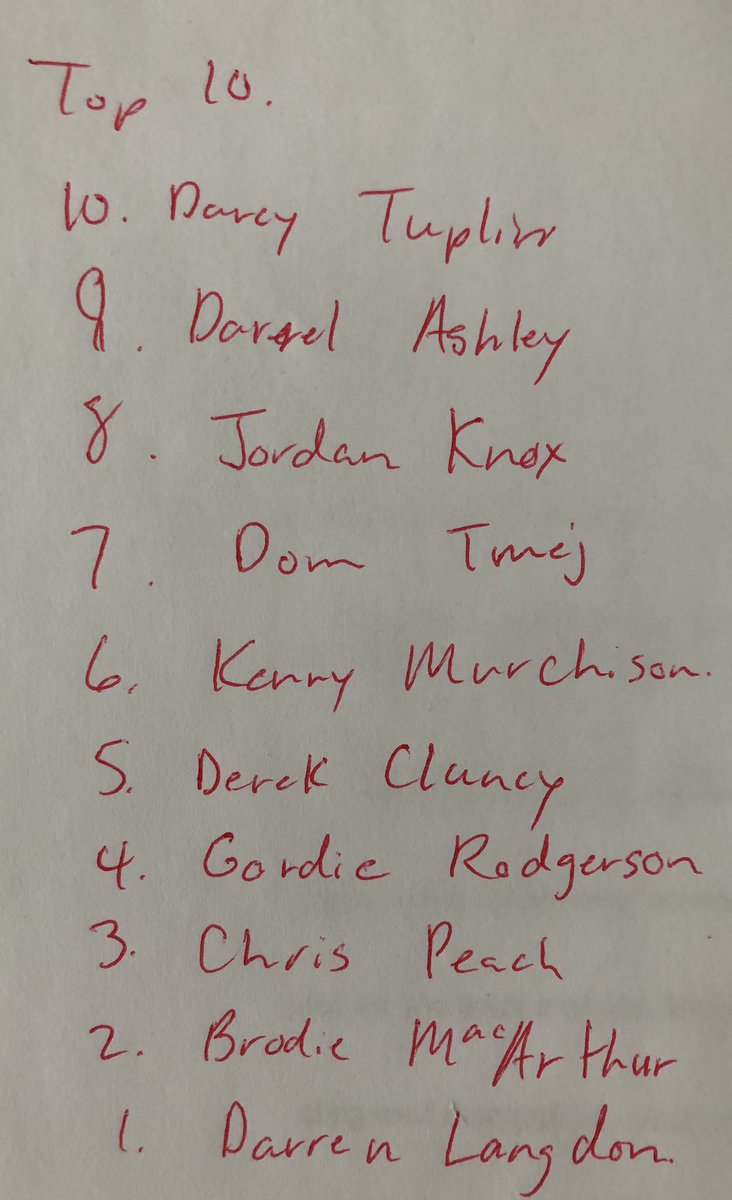 Top 10.
10. Darcy Tuplin
9. Darrel Ashley
8. Jordan Knox
7. Dom Tmej
6. Kenny Murchison.
5. Derek Clancy
4. Gordie Rodgerson
3. Chris Peach
2. Brodie MacArthur
1. Darren Langdon.